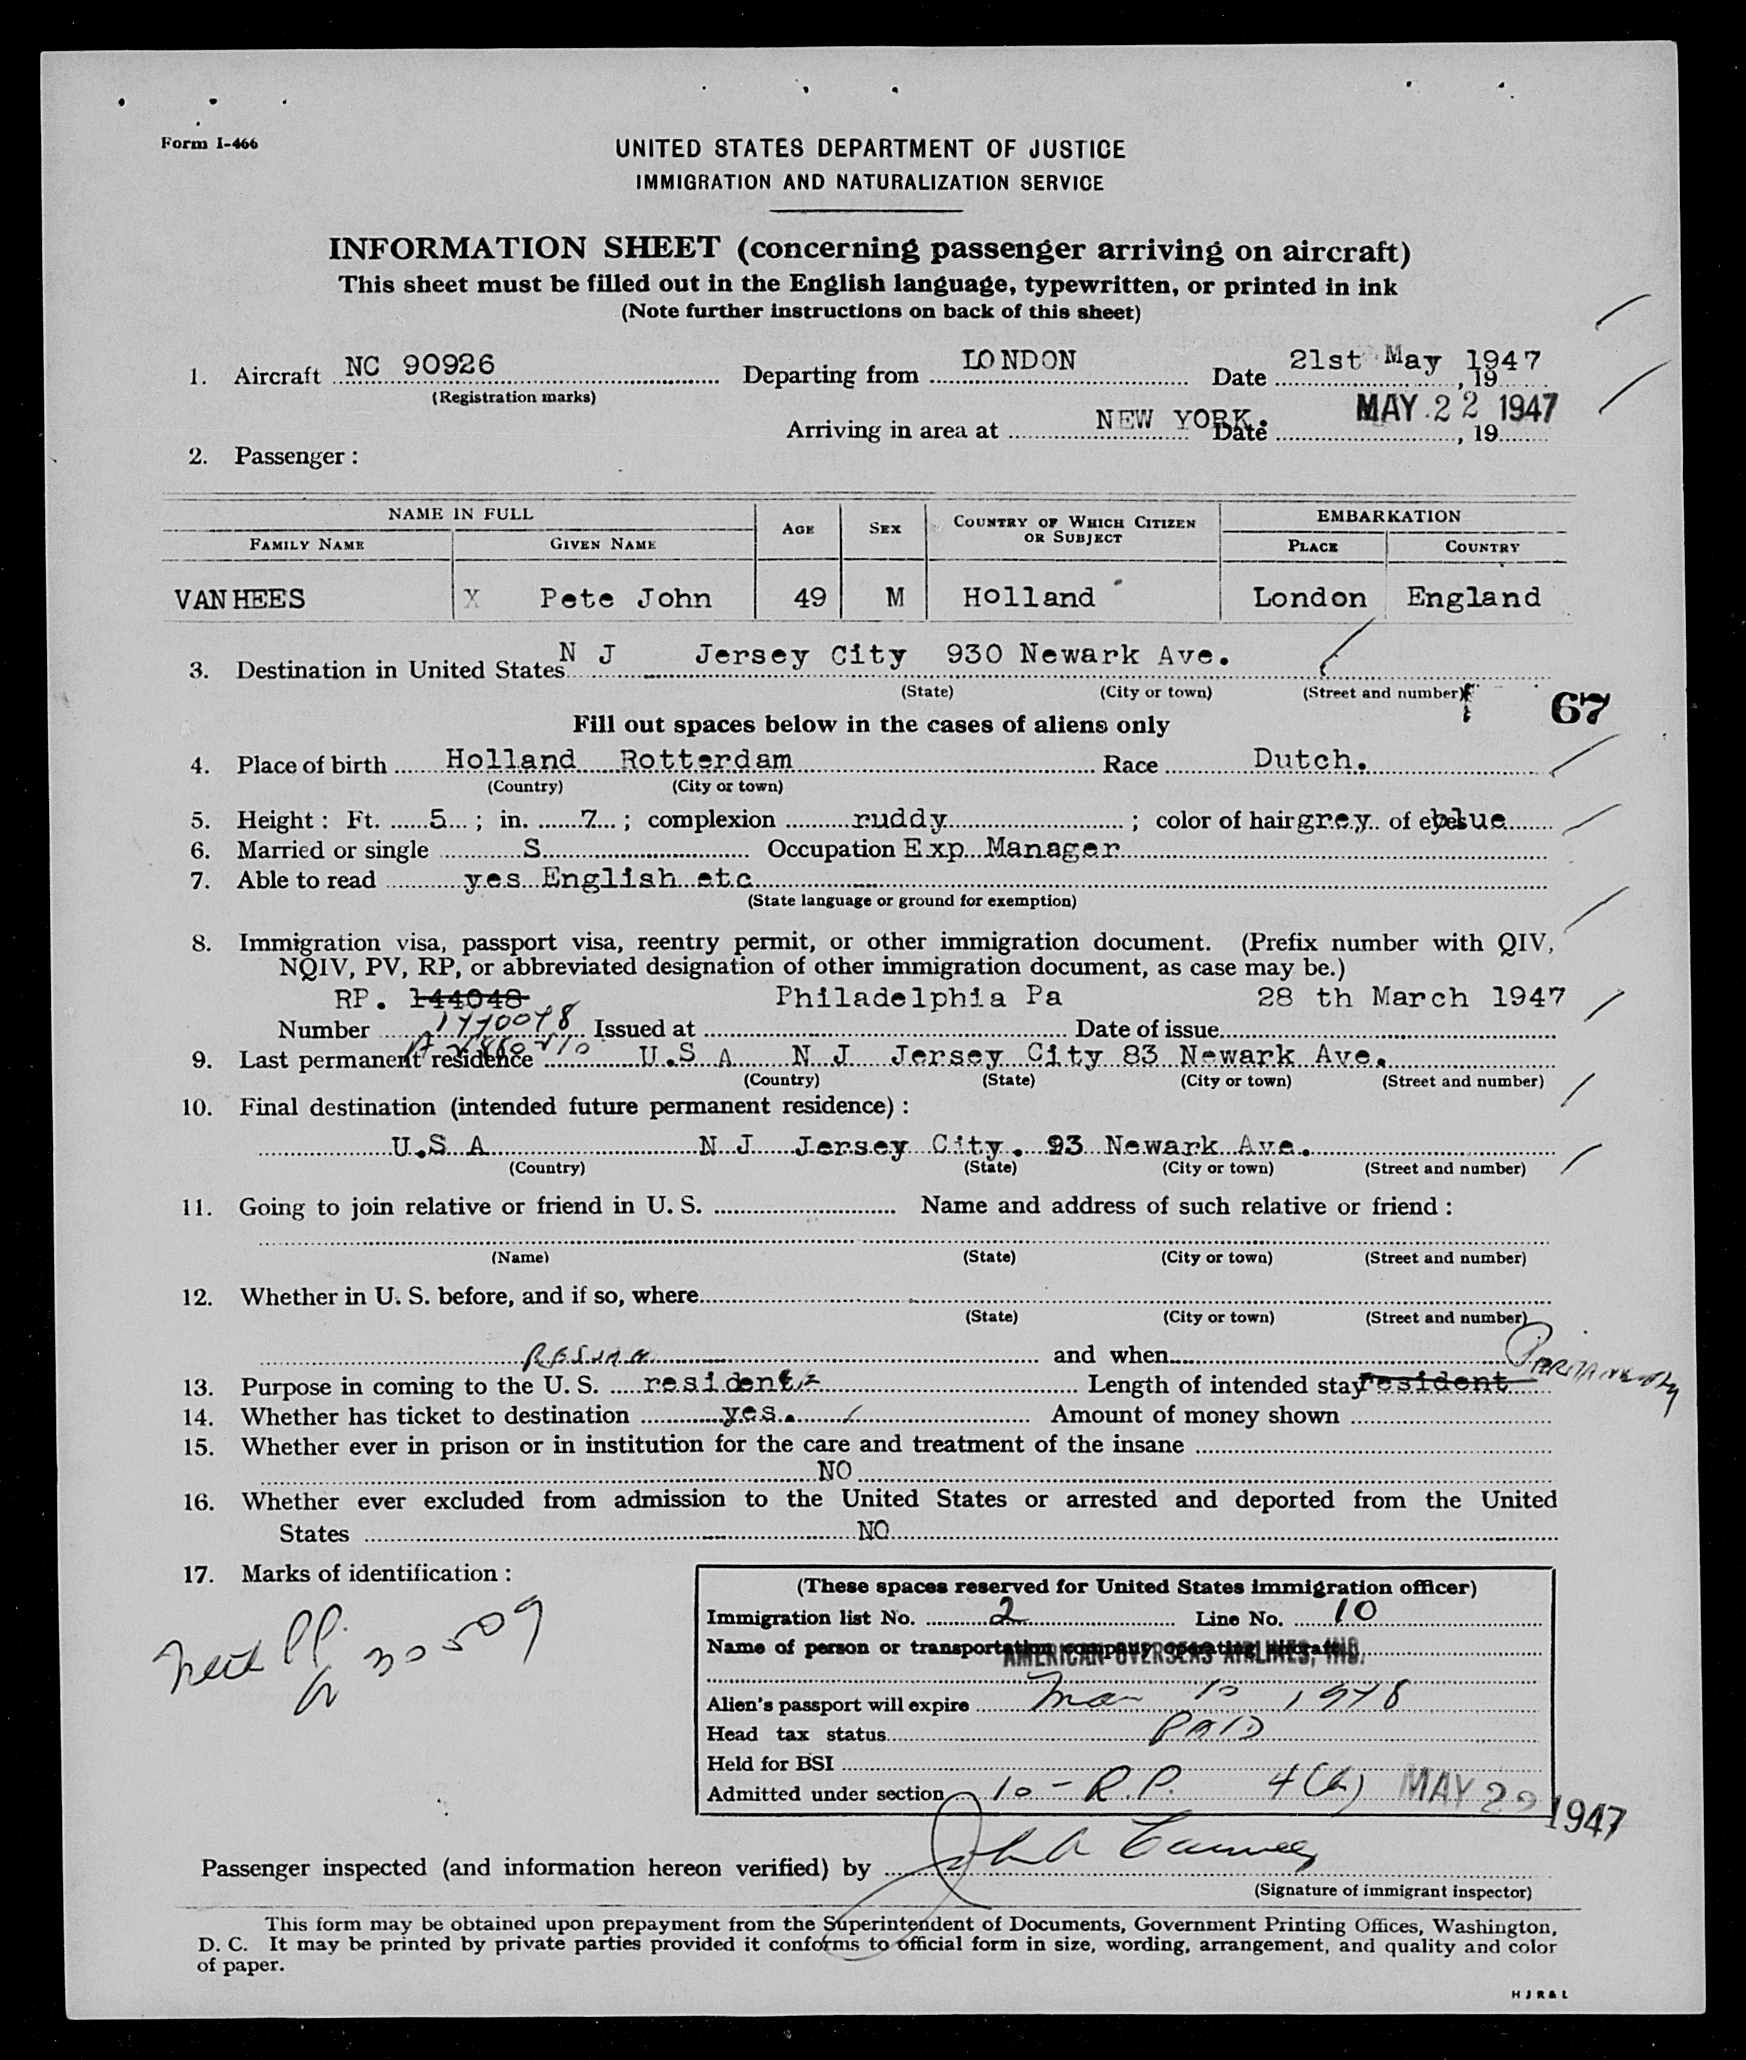 Form I-466
UNITED STATES DEPARTMENT OF JUSTICE
IMMIGRATION AND NATURALIZATION SERVICE
INFORMATION SHEET (concerning passenger arriving on aircraft)
This sheet must be filled out in the English language, typewritten, or printed in ink
(Note further instructions on back of this sheet)
1. Aircraft NC 90926 Departing from LONDON Date 21st May 1947, 19
(Registration marks)
Arriving in area at NEW YORK. Date MAY 22 1947, 19
2. Passenger:
NAME IN FULL AGE SEX COUNTRY OF WHICH CITIZEN OR SUBJECT EMBARKATION
FAMILY NAME GIVEN NAME PLACE COUNTRY
VAN HEES X Pete John 49 M Holland London England
3. Destination in United States N J Jersey City 930 Newark Ave.
(State) (City or town) (Street and number)
67
Fill out spaces below in the cases of aliens only
4. Place of birth Holland Rotterdam Race Dutch.
(Country) (City or town)
5. Height: Ft. 5; in. 7; complexion ruddy; color of hair grey of eyes blue
6. Married or single S Occupation Exp Manager
7. Able to read yes English etc
(State language or ground for exemption)
8. Immigration visa, passport visa, reentry permit, or other immigration document. (Prefix number with QIV,
NQIV, PV, RP, or abbreviated designation of other immigration document, as case may be.)
RP. 144048 Philadelphia Pa 28 th March 1947
Number Issued at Date of issue
9. Last permanent residence U.S A N J Jersey City 83 Newark Ave.
(Country) (State) (City or town) (Street and number)
10. Final destination (intended future permanent residence):
U.S A N J Jersey City. 93 Newark Ave.
(Country) (State) (City or town) (Street and number)
11. Going to join relative or friend in U. S. Name and address of such relative or friend:
(Name) (State) (City or town) (Street and number)
12. Whether in U. S. before, and if so, where
(State) (City or town) (Street and number)
and when
13. Purpose in coming to the U. S. resident Length of intended stay resident Permanently
14. Whether has ticket to destination yes. Amount of money shown
15. Whether ever in prison or in institution for the care and treatment of the insane
NO
16. Whether ever excluded from admission to the United States or arrested and deported from the United
States NO
17. Marks of identification:
(These spaces reserved for United States immigration officer)
Immigration list No. 2 Line No. 10
Name of person or transportation company operating aircraft AMERICAN OVERSEAS AIRLINES, INC.
Alien's passport will expire Mar 10 1948
Head tax status PAID
Held for BSI
Admitted under section 10 - R.P. 4(b) MAY 22 1947
Neth PP. 30509
Passenger inspected (and information hereon verified) by
(Signature of immigrant inspector)
This form may be obtained upon prepayment from the Superintendent of Documents, Government Printing Offices, Washington,
D. C. It may be printed by private parties provided it conforms to official form in size, wording, arrangement, and quality and color
of paper.
H J R & L